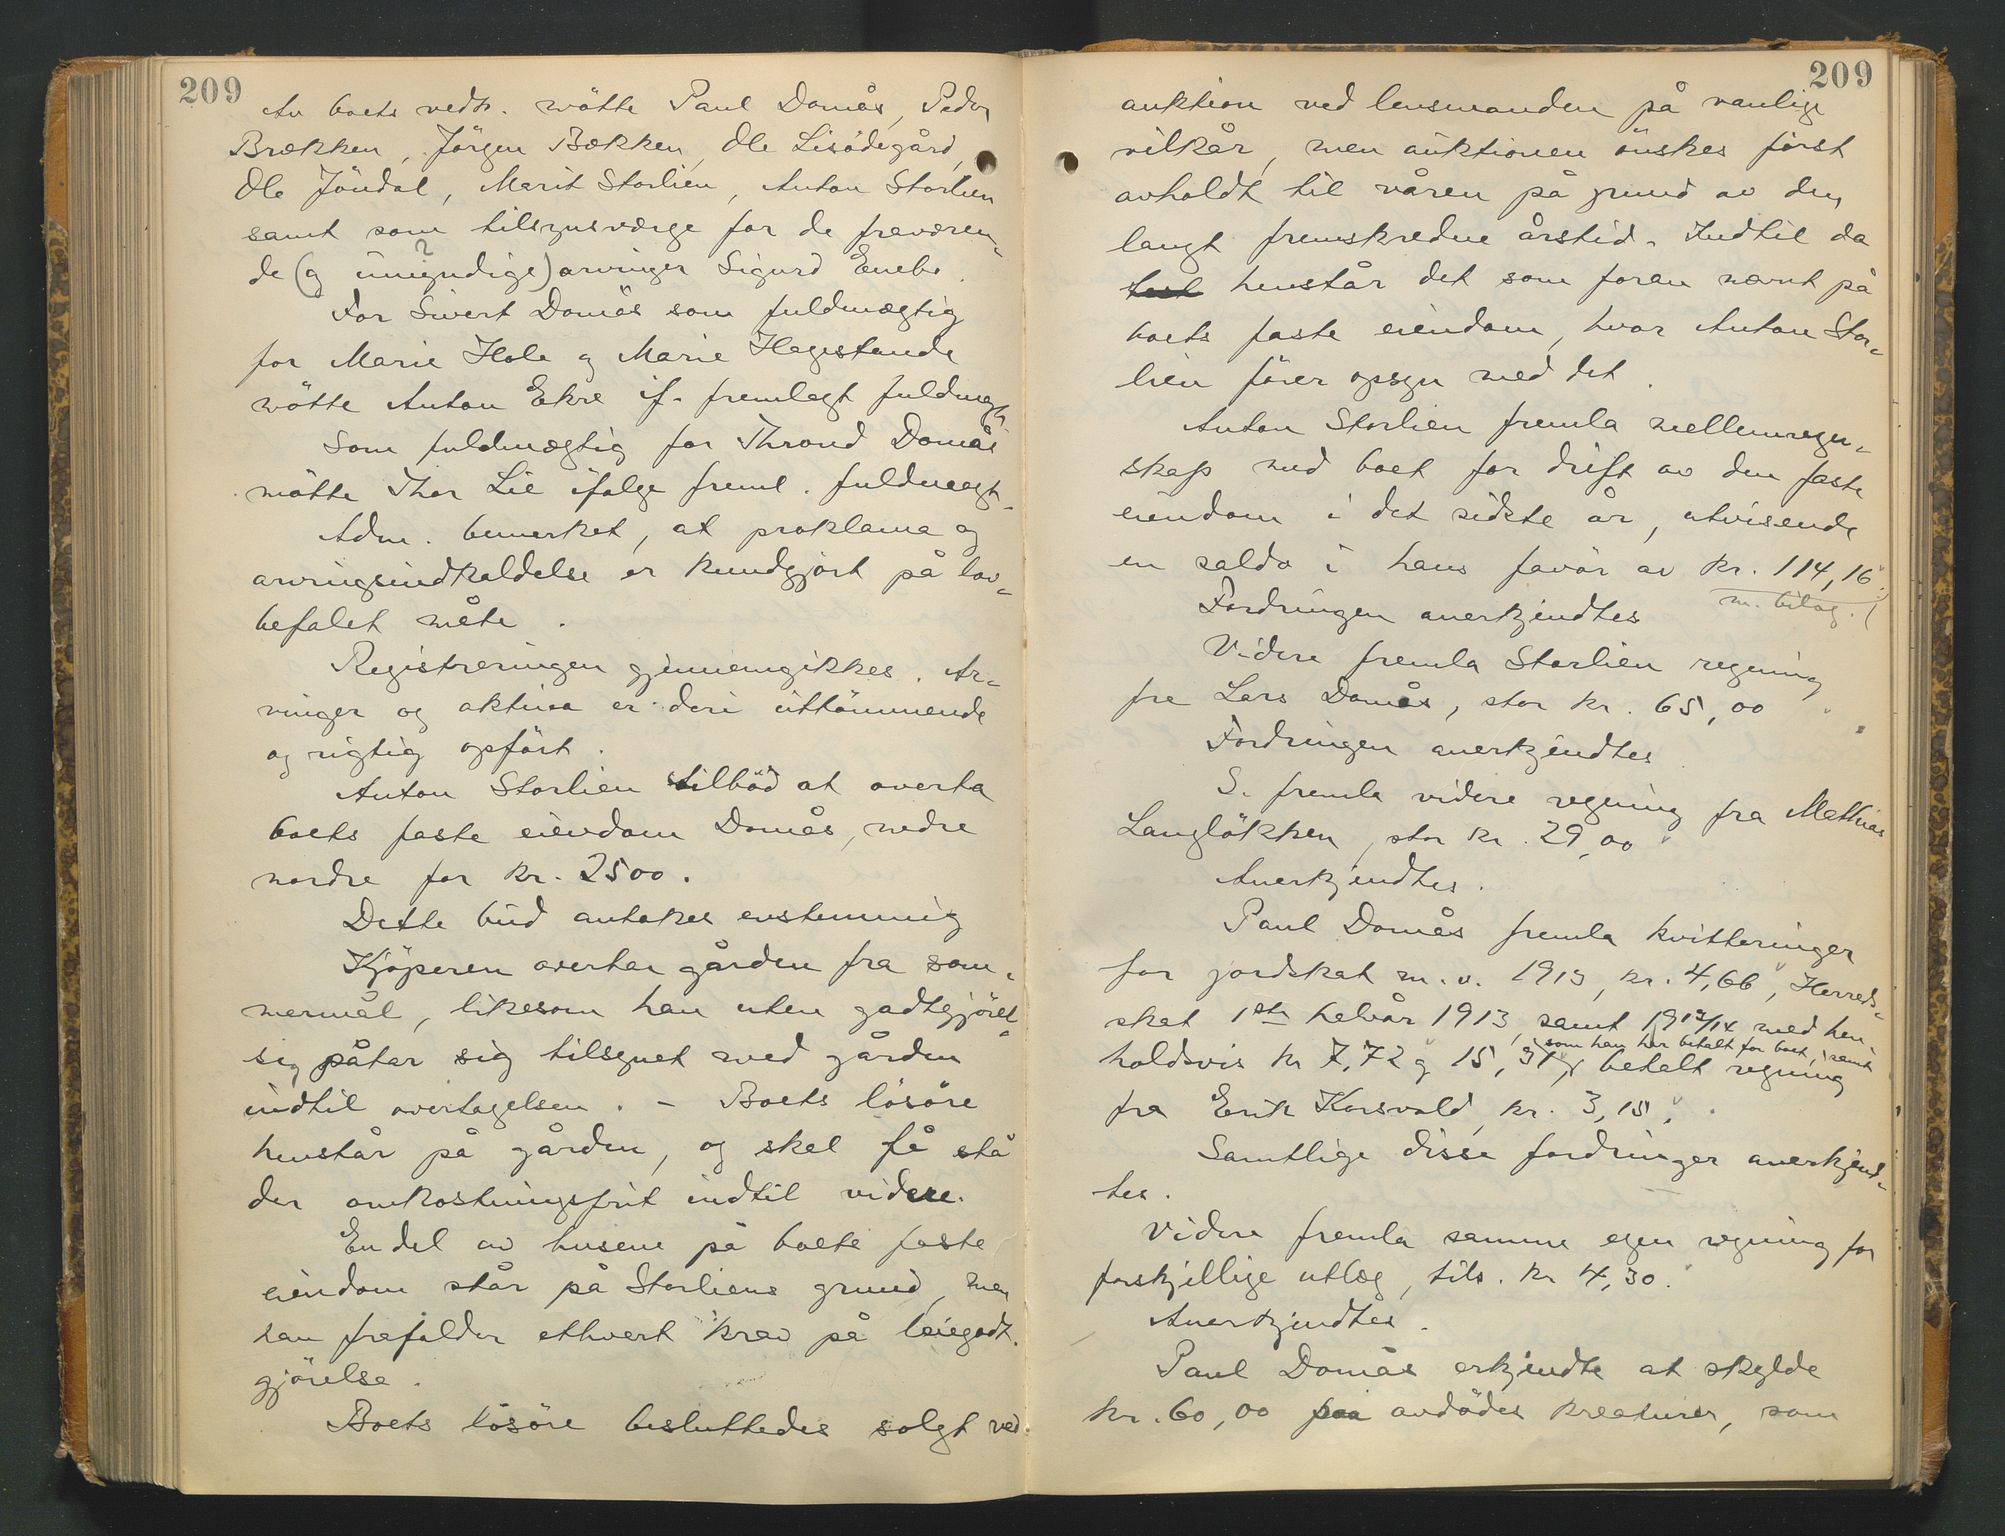 209
Av boets vedk. mötte Paul Domås, Peder
Brækken, Jörgen Bækken, Ole Lisödegård,
Ole Jöndal, Marit Storlien, Anton Storlien
samt som tilsynsværge for de fraværen-
de (og umyndige)? arvinger Sigurd Enebo.
For Sivert Domås som fuldmægtig
for Marie Hole og Marie Hagestande
mötte Anton Ekre if. fremlagt fuldmagt.
Som fuldmægtig for Thrond Domås
mötte Thor Lie ifölge freml. fuldmagt.
Adm. bemerket, at proklama og
arvingsindkaldelse er kundgjort på lov-
befalet måte.
Registreringen gjennemgikkes. Ar-
vinger og aktiva er deri uttömmende
og rigtig opfört.
Anton Storlien tilböd at overta
boets faste eiendom Domås, nedre
nordre for kr. 2500.
Dette bud antokes enstemmig
Kjöperen overtar gården fra som-
mermål, likesom han uten godtgjörel-
se påtar sig tilsynet med gården
indtil overtagelsen. - Boets lösöre
henstår på gården, og skal få stå
der omkostningsfrit indtil videre.
En del av husene på boets faste
eiendom står på Storliens grund, men
han frafalder ethvert krav på leiegodt-
gjörelse.
Boets lösöre besluttedes solgt ved
209
auktion ved lensmanden på vanlige
vilkår, men auktionen önskes först
avholdt til våren på grund av den
langt fremskredne årstid. Indtil da
henstår det som foran nævnt på
boets faste eiendom, hvor Anton Stor-
lien förer opsyn med det.
Anton Storlien fremla mellemregn-
skap med boet for drift av den faste
eiendom i det sidste år, utvisende
en saldo i hans favör av kr. 114,16
m. bilag.
Fordringen anerkjendtes
Videre fremla Storlien regning
fra Lars Domås, stor kr. 65,00
Fordringen anerkjendtes.
S. fremla videre regning fra Mathias
Langlökken, stor kr. 29,00
Anerkjendtes.
Paul Domås fremla kvitteringer
for jordskat m.v. 1913, kr. 4,66, Herreds-
skat 1ste halvår 1913, samt 1913/14 med hen-
som han har betalt for boet, samt
holdsvis kr 7,72 og 15,31, betalt regning
fra Erik Korsvold, kr. 3,15.
Samtlige disse fordringer anerkjend-
tes.
Videre fremla samme egen regning for
forskjellige utlæg, tils. kr 4,30.
Anerkjendtes.
Paul Domås erkjendte at skylde
kr. 60,00 paa avdödes kreaturer, som